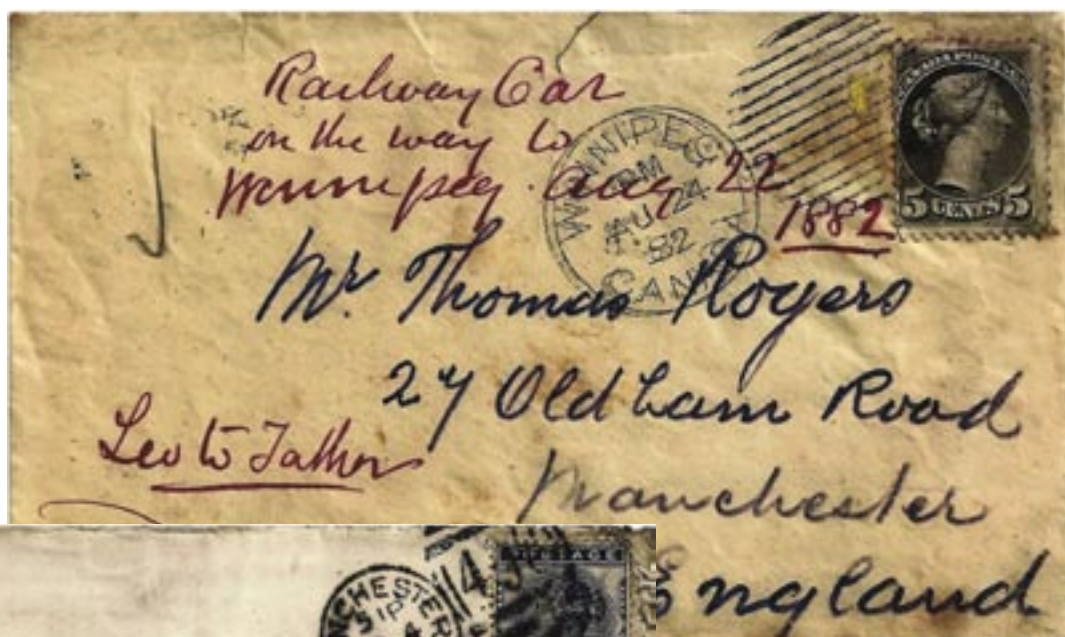 Railway Car
on the way to
Winnipeg. Aug 22
1882
WINNIPEG
PM
AU 24
82
CANADA
CANADA POSTAGE
5 CENTS 5
Mr. Thomas Rogers
27 Oldham Road
Manchester
England
Leo to Father
CHESTER
4
POSTAGE